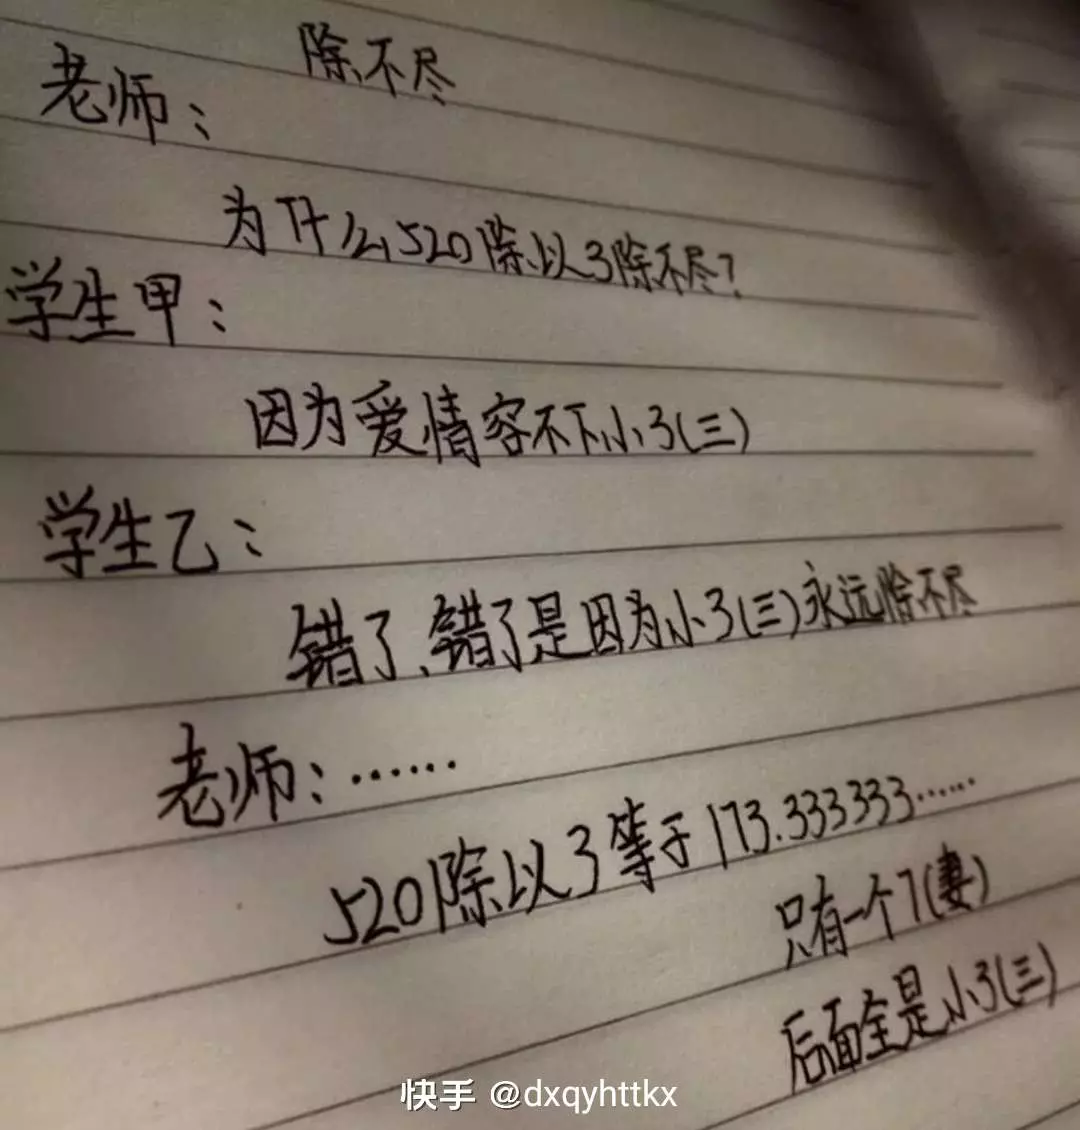 除不尽
老师：
为什么520除以3除不尽？
学生甲：
因为爱情容不下小3(三)
学生乙：
错了、错了是因为小3(三)永远除不尽
老师：……
520除以3等于173.333333……
只有一个7(妻)
后面全是小3(三)
快手 @dxqyhttkx